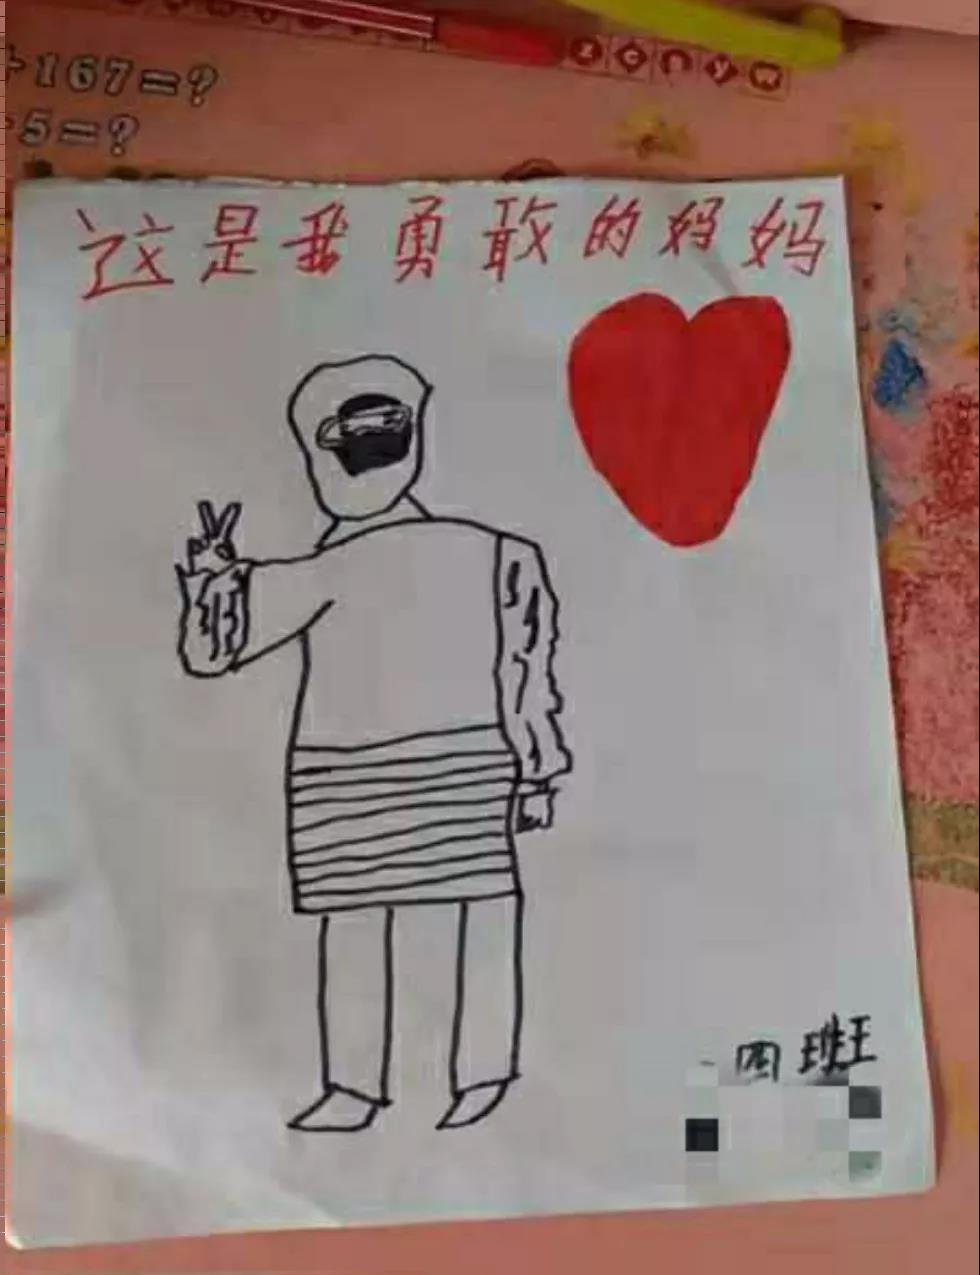 +167=?
5=?
这是我勇敢的妈妈
四班